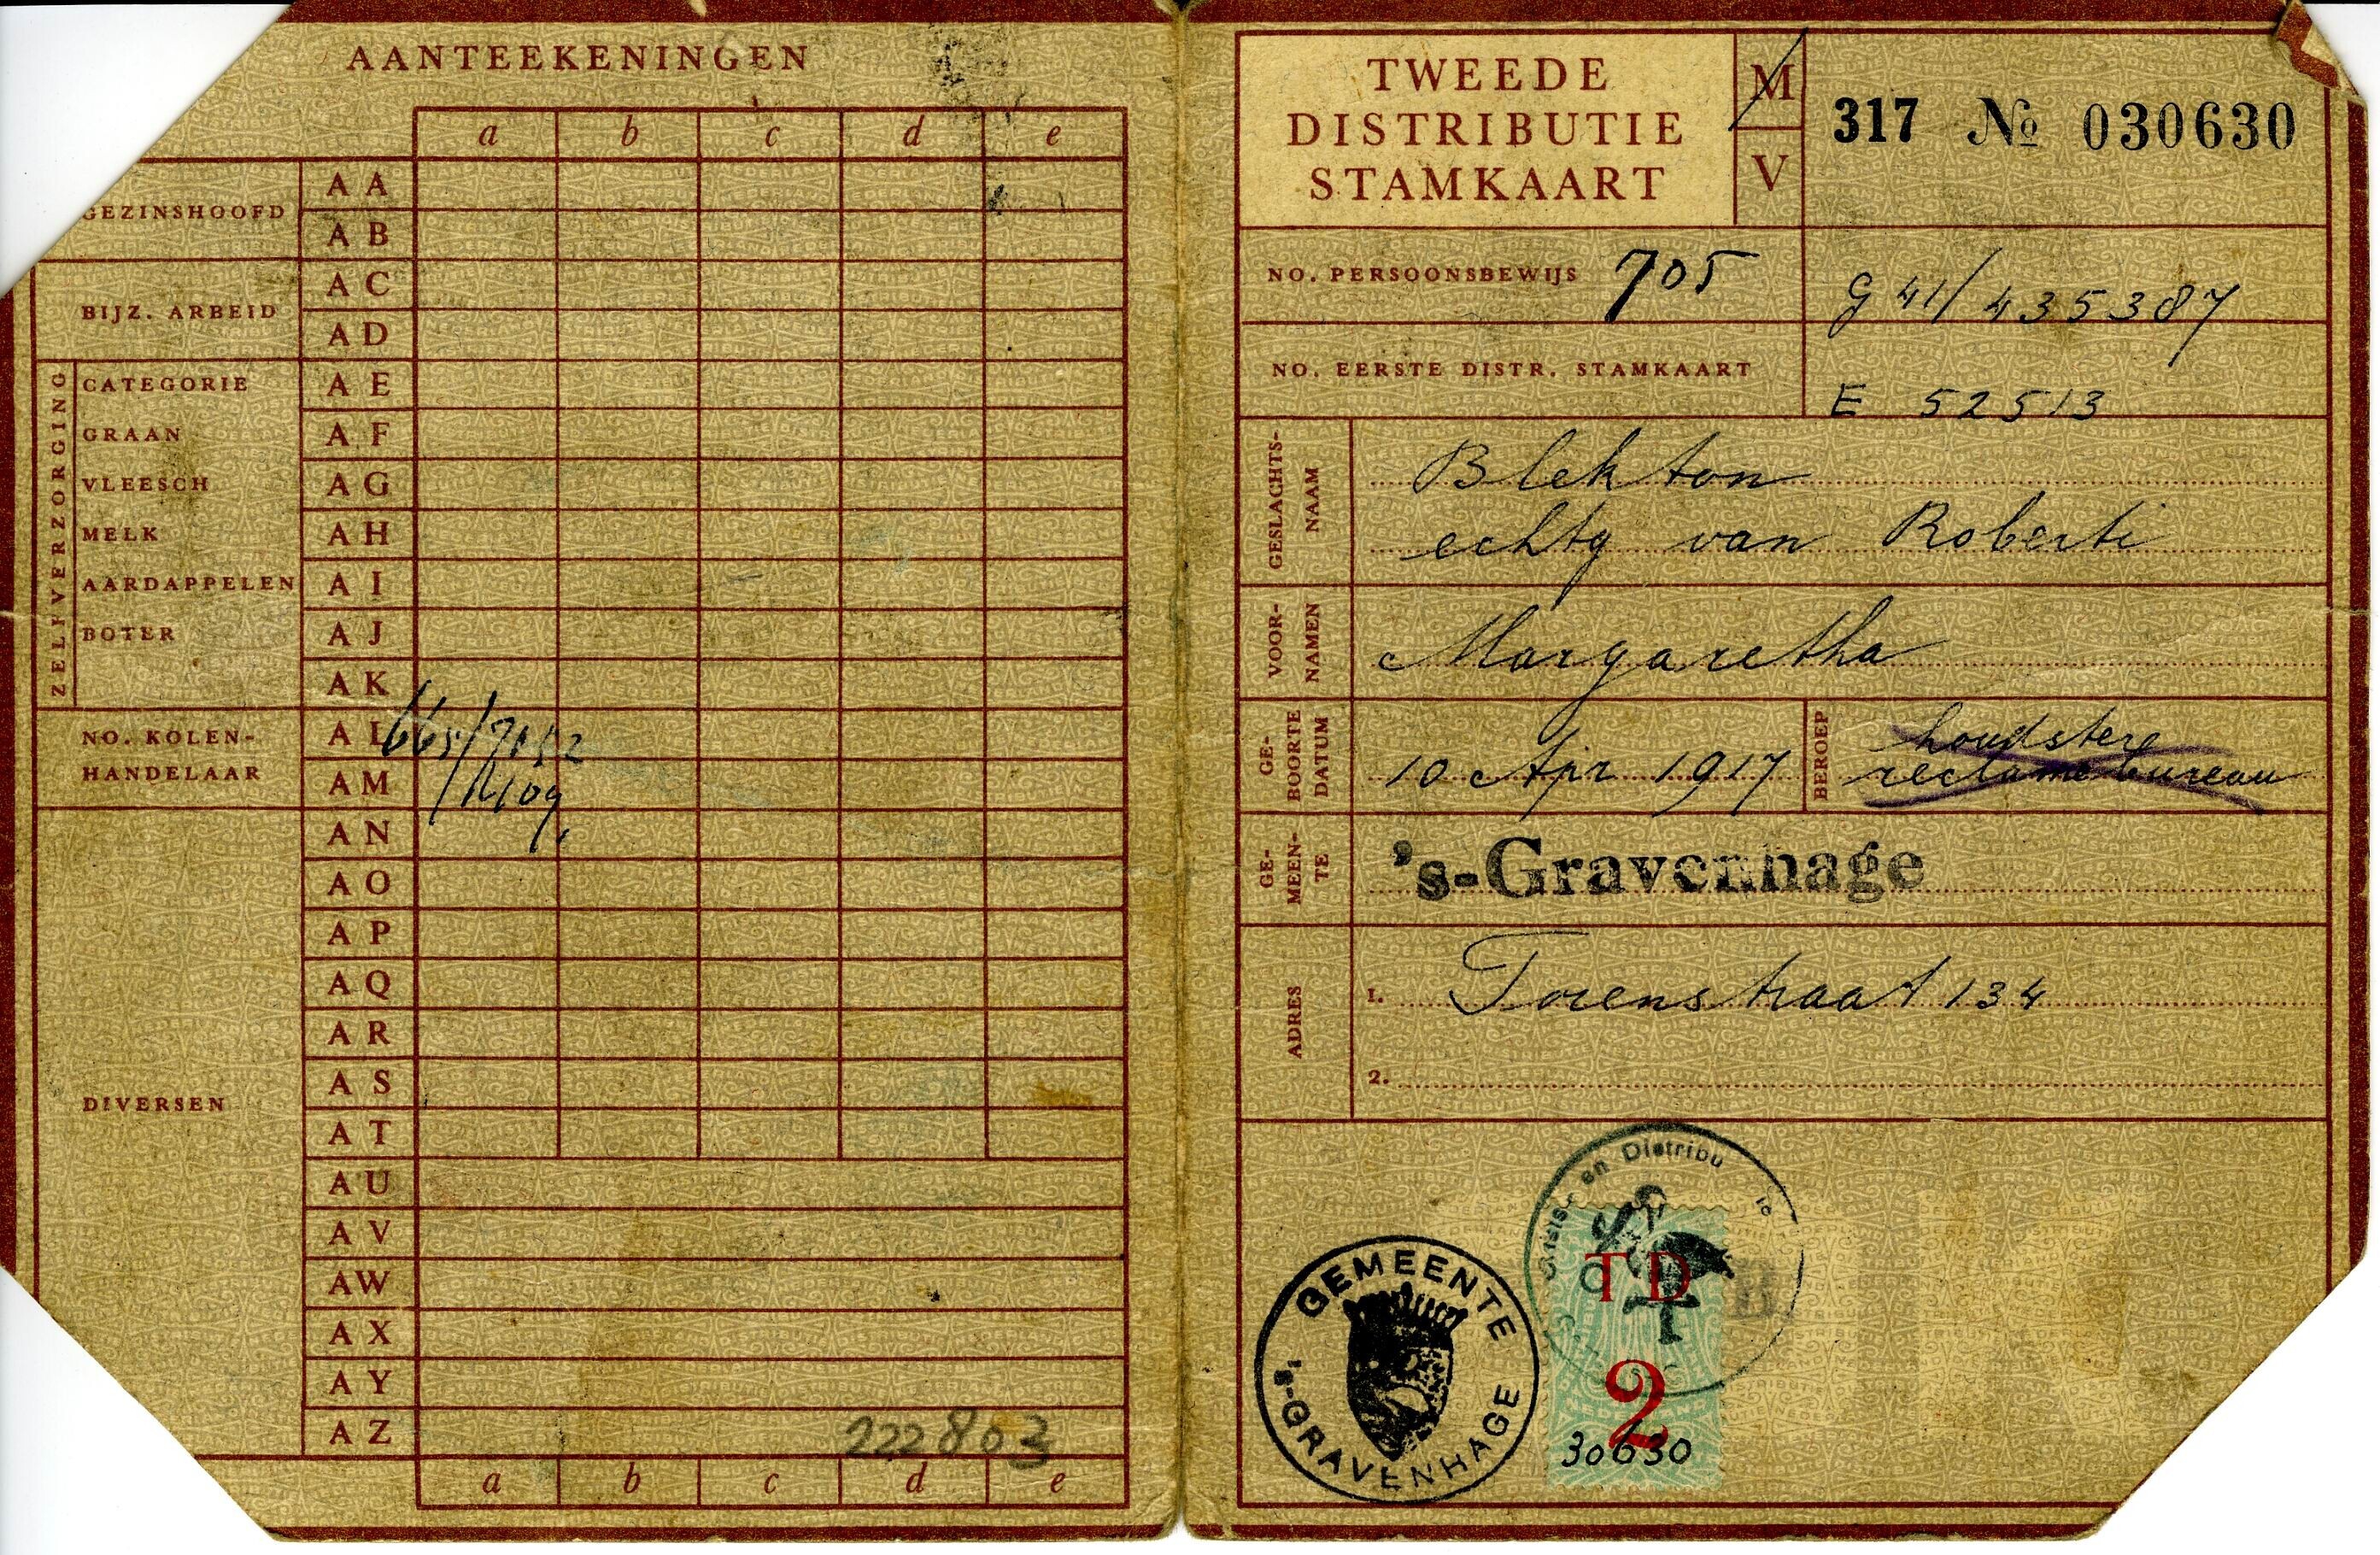 AANTEEKENINGEN
a b c d e
GEZINSHOOFD
A A
A B
BIJZ. ARBEID
A C
A D
ZELFVERZORGING
CATEGORIE A E
GRAAN A F
VLEESCH A G
MELK A H
AARDAPPELEN A I
BOTER A J
A K
NO. KOLEN-
HANDELAAR
A L
A M
DIVERSEN
A N
A O
A P
A Q
A R
A S
A T
A U
A V
A W
A X
A Y
A Z 222803
a b c d e
TWEEDE
DISTRIBUTIE
STAMKAART
M
V
317 No 030630
NO. PERSOONSBEWIJS 705 G 41/435387
NO. EERSTE DISTR. STAMKAART E 52513
GESLACHTS-
NAAM
Blekton
echtg van Roberti
VOOR-
NAMEN
Margaretha
GE-
BOORTE
DATUM
10 Apr 1917
BEROEP
houdster
reclame bureau
GE-
MEEN-
TE
's-Gravenhage
ADRES
1. Torenstraat 134
2.
GEMEENTE
's-GRAVENHAGE
en Distribu
TD
2
30630